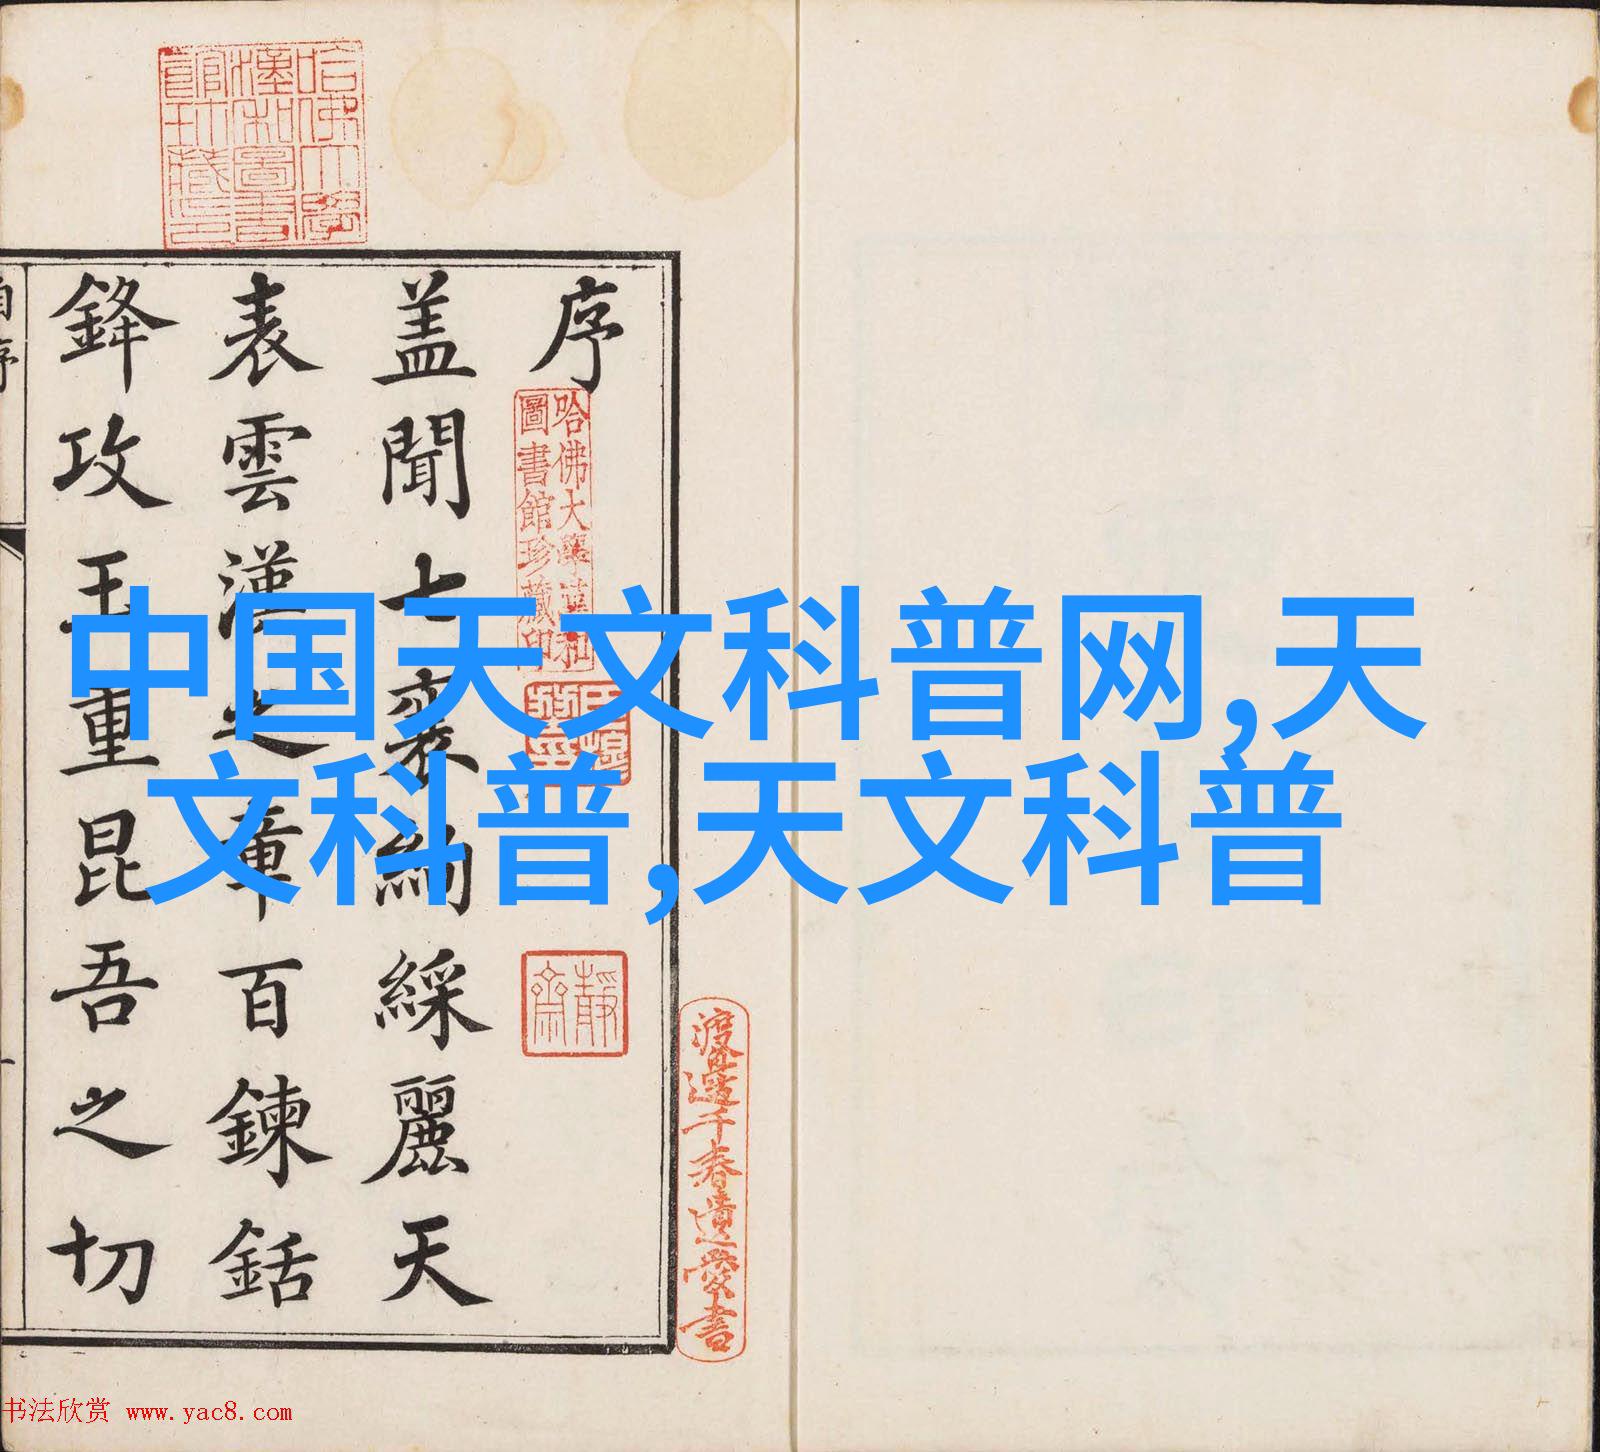 哈佛大學
漢和圖書
館珍藏印
序
蓋聞七襄絢綵麗天
表雲漢之章百鍊銛
鋒攻玉重昆吾之切
自序
哈佛大學漢和
圖書館珍藏印
靜齋
渡邊千春遺愛書
中国天文科普网,天
文科普,天文科普
书法欣赏 www.yac8.com